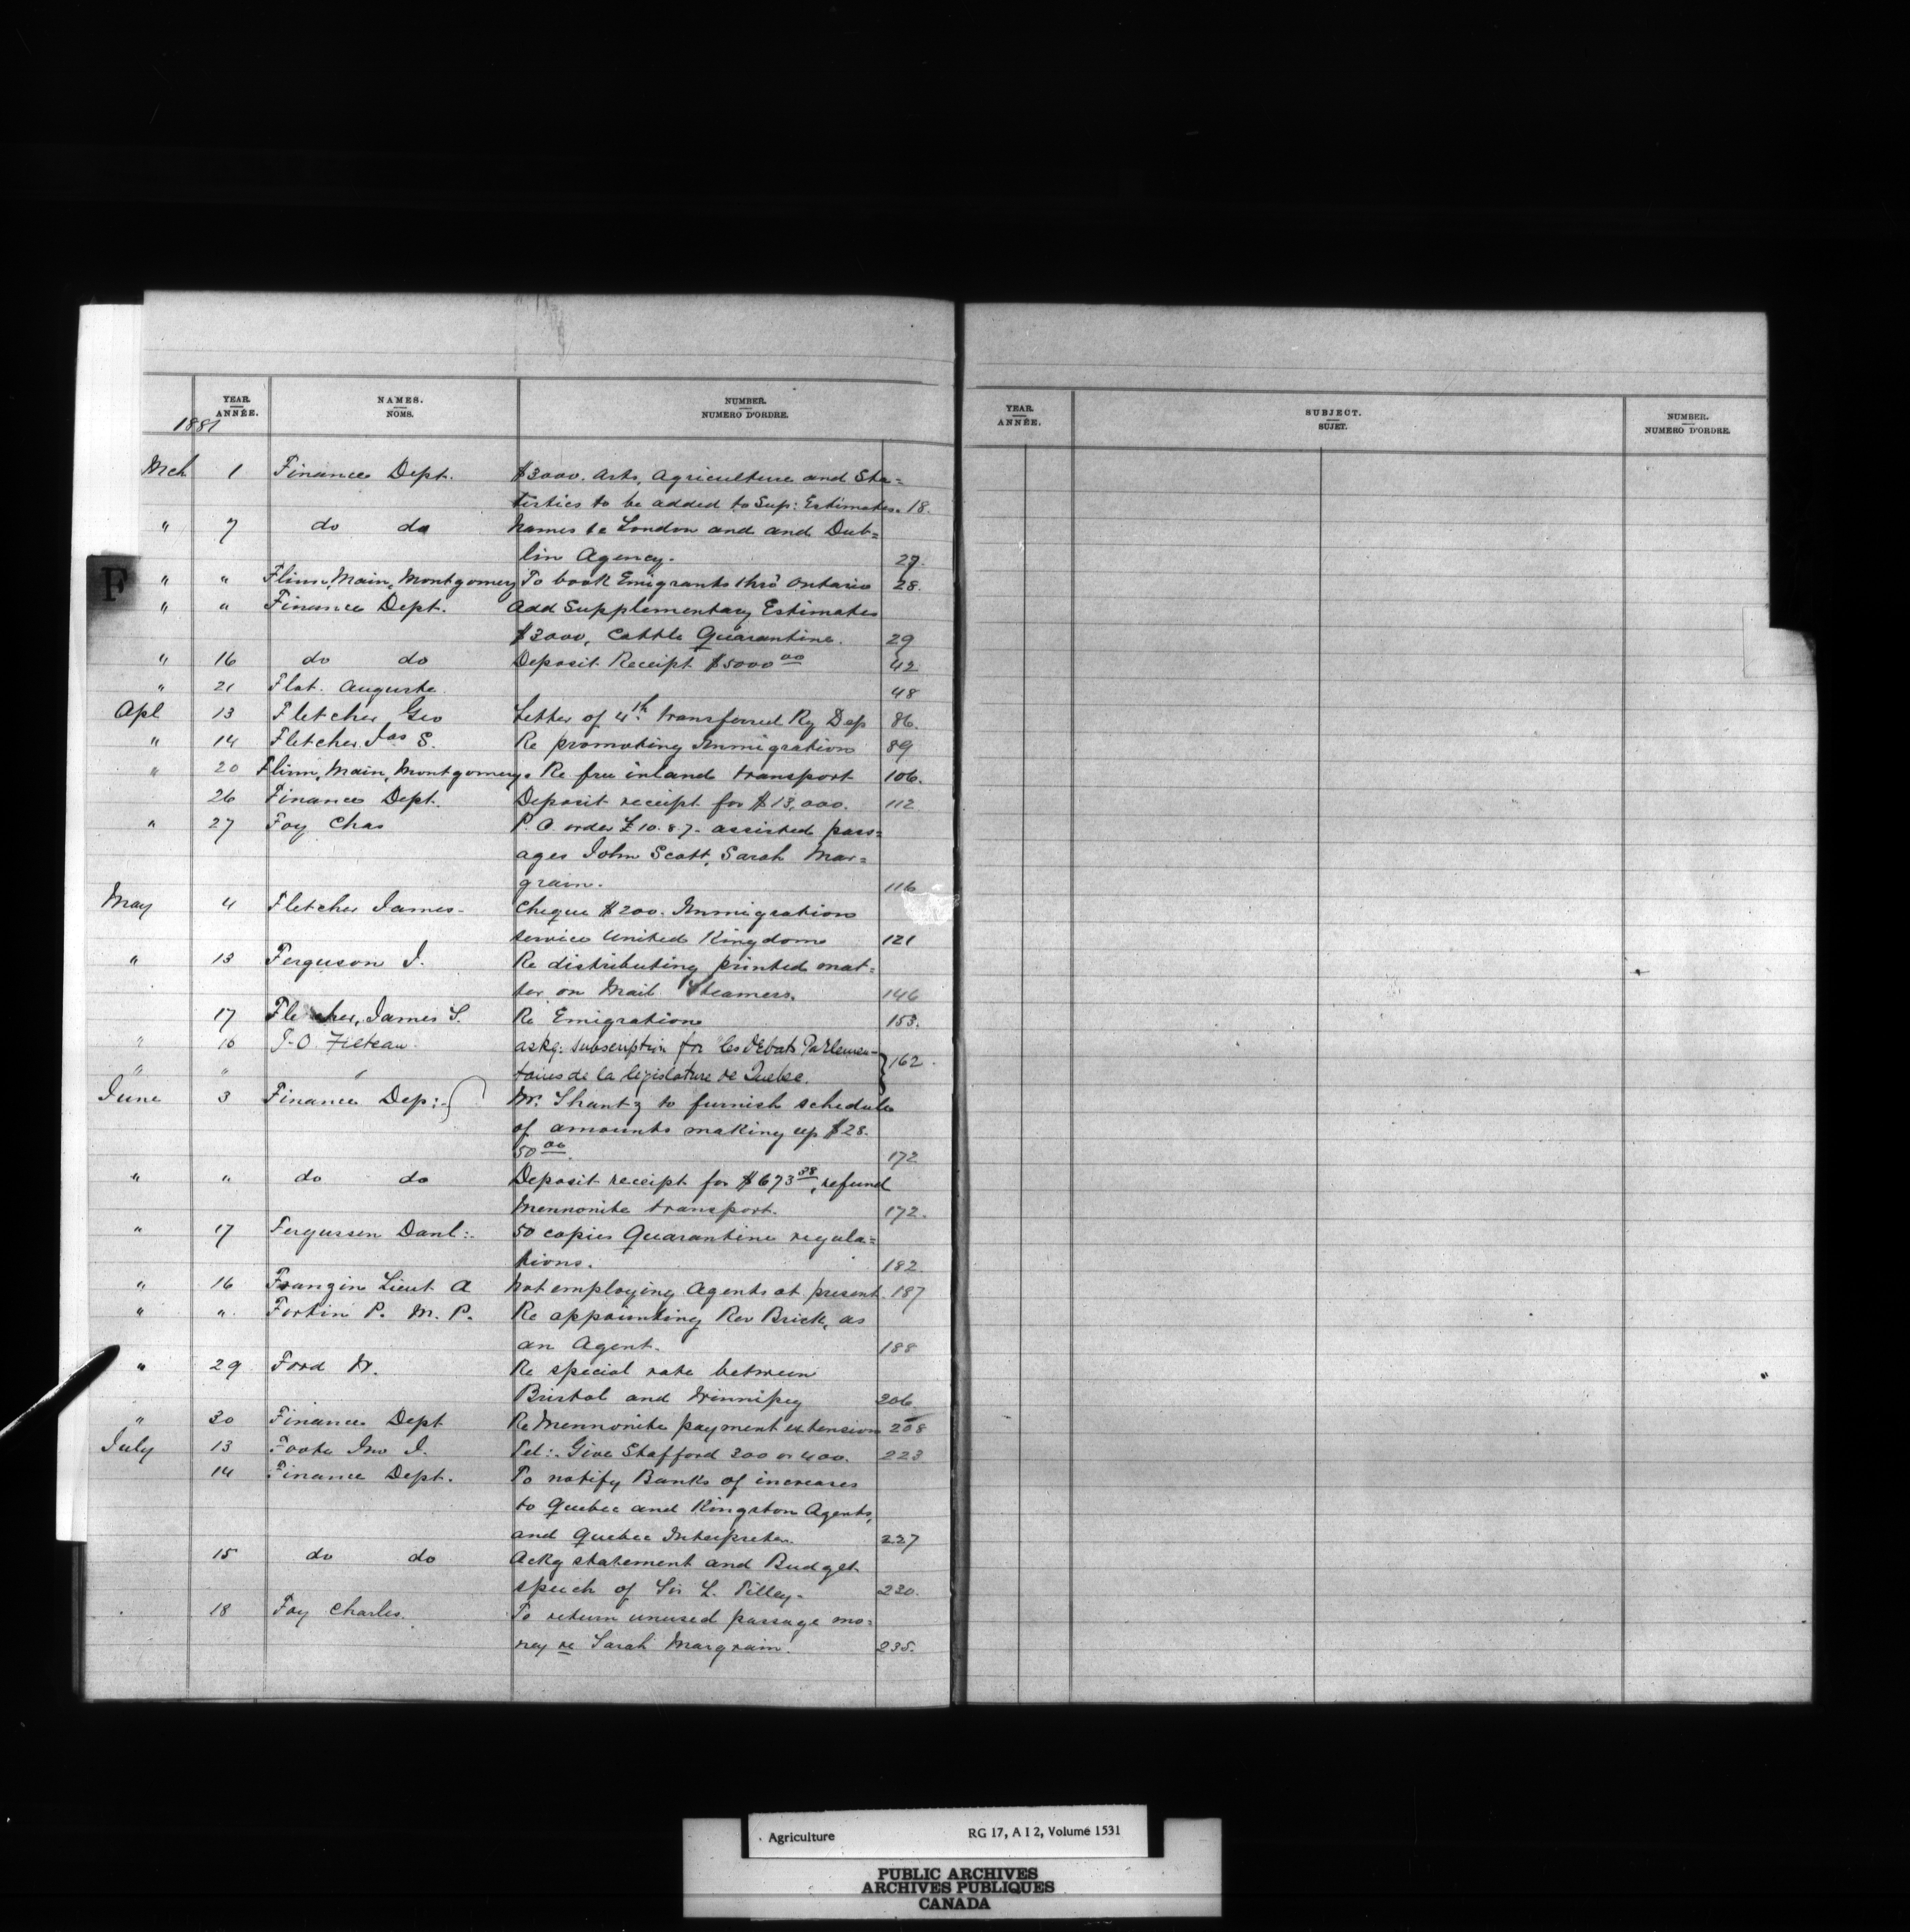 YEAR. NAMES. NUMBER.
ANNÉE. NOMS. NUMERO D'ORDRE.
1881
Mch 1 Finance Dept. $3000. Arts, Agriculture and Sta=
tistics to be added to Sup: Estimates. 18.
" 7 do do Names to London and and Dub=
lin Agency. 27.
F
" " Flinn, Main, Montgomery To book Emigrants thro' Ontario 28.
" " Finance Dept. Add Supplementary Estimates
$3000, Cattle Quarantine. 29
" 16 do do Deposit Receipt $5000 00 42
" 21 Flot. Auguste. 48
Apl 13 Fletcher Geo Letter of 4th transferred Ry Dep 86.
" 14 Fletcher Jas S. Re promoting Immigration 89
" 20 Flinn, Main, Montgomery. Re free inland transport 106.
26 Finance Dept. Deposit receipt for $13,000. 112
" 27 Foy Chas P.O. order £10.8.7. assisted pass=
ages John Scott, Sarah Mar=
grain. 116
May 4 Fletcher James. Cheque $200. Immigration
service United Kingdom 121
" 13 Ferguson J. Re distributing printed mat=
ter on Mail Steamers. 146
17 Fletcher, James S. Re Emigration 153.
" 16 J.O. Filteau askg. subscription for les débats Parlemen- 162.
" " " taires de la législature de Quebec.
June 3 Finance Dep: Mr. Shantz to furnish schedule
of amounts making up $28.
50 00. 172
" " do do Deposit receipt for $673 38, refund
Mennonite transport. 172.
" 17 Fergussen Danl: 50 copies Quarantine regula=
tions. 182
" 16 Frangin Lieut A Not employing Agents at present. 187
" " Fortin P. M.P. Re appointing Rev Brick, as
an Agent. 188
" 29 Ford W. Re special rate between
Bristol and Winnipeg 206
" 30 Finance Dept Re Mennonite payment extension 208
July 13 Foote Jno J. Tel:. Give Stafford 300 or 400. 223
14 Finance Dept. To notify Banks of increases
to Quebec and Kingston Agents,
and Quebec Interpreter. 227
15 do do Ackg statement and Budget
speech of Sir L. Tilley. 230.
18 Foy Charles. To return unused passage mo=
ney re Sarah Margrain. 235.
YEAR. SUBJECT. NUMBER.
ANNÉE. SUJET. NUMERO D'ORDRE.
Agriculture RG 17, A I 2, Volume 1531
PUBLIC ARCHIVES
ARCHIVES PUBLIQUES
CANADA